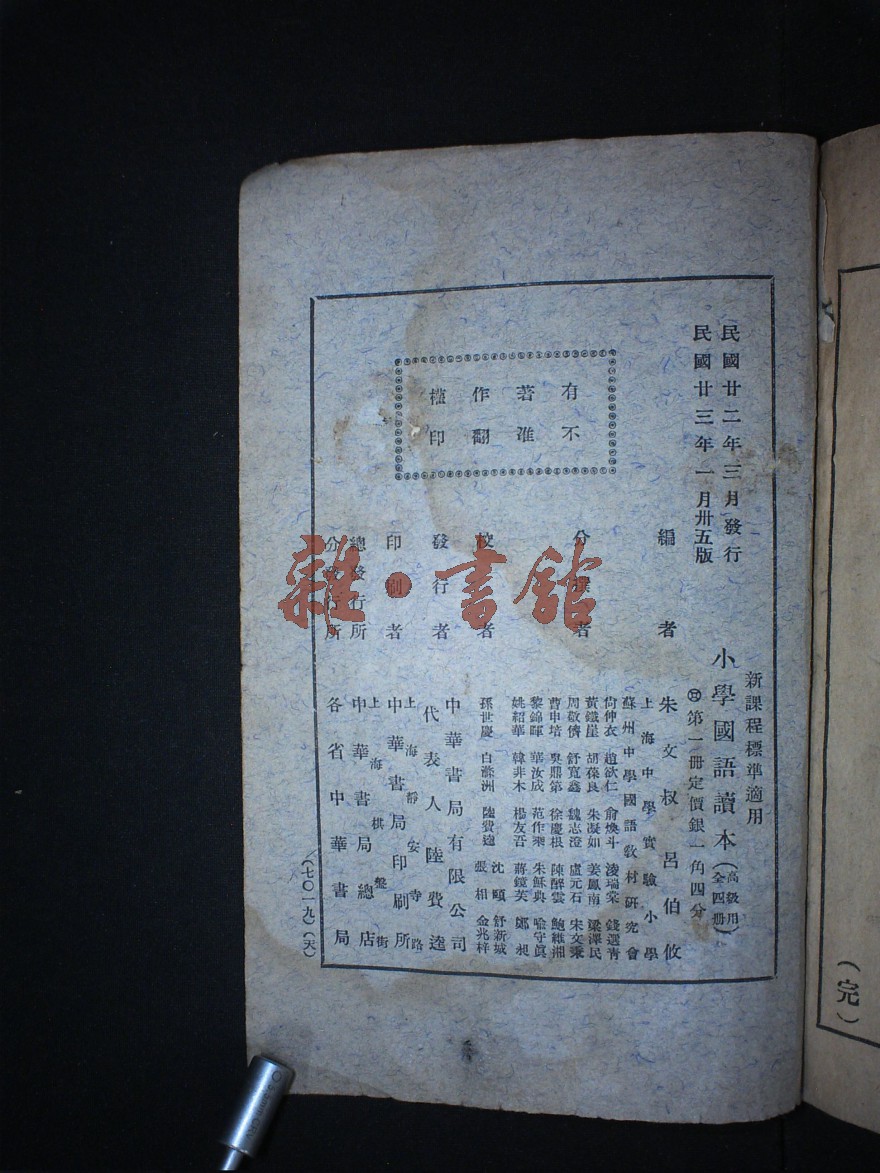 民國廿二年三月發行
民國廿三年一月卅五版
新課程標準適用
小學國語讀本（高級用全四冊）
第一冊定價銀一角四分
有不
著准
作翻
權印
編者
朱文叔 呂伯攸
上海中學實驗小學
蘇州中學國語教材研究會
分撰者
尚仲衣 趙欲仁 俞煥斗 淩瑞棠 錢選青
黃鐵崖 胡葆良 朱凝如 姜鳳南 梁澤民
周敬儕 舒寬鑫 魏志澄 盧元石 宋文秉
曹申培 吳鼎第 徐慶根 陳醉雲 鮑維湘
黎錦暉 華汝成 范作乘 朱穌典 喻守眞
姚紹華 韓非木 楊友吾 蔣鏡芙 鄭昶
校者
沈頤 舒新城
孫世慶 白滌洲 陸費逵 張相 金兆梓
發行者
中華書局有限公司
代表人 陸費逵
印刷者
上海靜安寺路
中華書局印刷所
總發行所
上海棋盤街
中華書局總店
分發行所
各省中華書局
（七〇一九）（天）
（完）
雜·書館